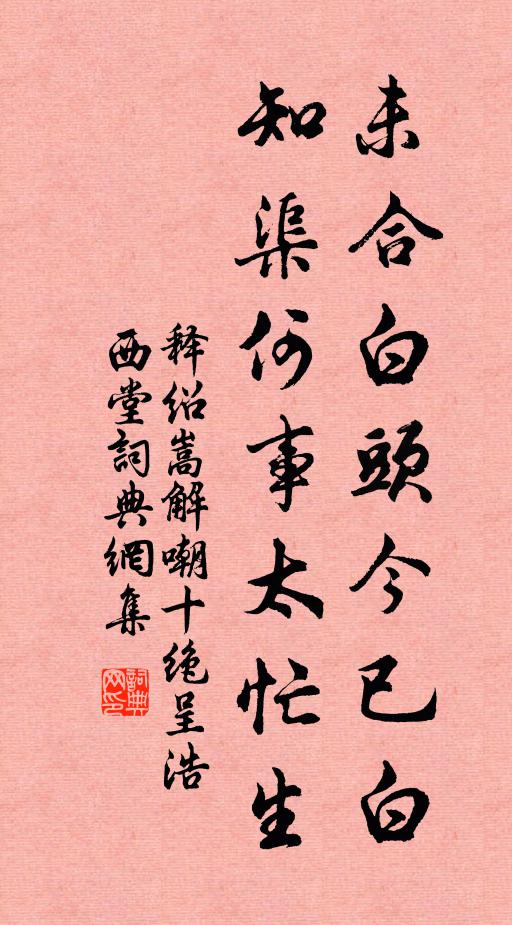 未合白頭今已白
知渠何事太忙生
释绍嵩解嘲十绝呈浩
西堂詞典網集
詞典网印